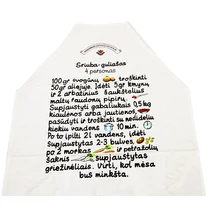 Sriuba-guliašas
4 personoms
100 gr svogūnų troškinti
50 gr aliejuje. Įdėti 5 gr kmynų
ir 2 arbatinius šaukštelius
maltų raudonų pipirų.
Supjaustyti gabaliukais 0,5 kg
kiaulienos arba jautienos,
pasūdyti ir troškinti su nedideliu
kiekiu vandens 10 min.
Po to įpilti 2l vandens, įdėti
supjaustytas 2-3 bulves,
po 2 morkas ir petražolių
šaknis supjaustytas
griežinėliais. Virti, kol mėsa
bus minkšta.